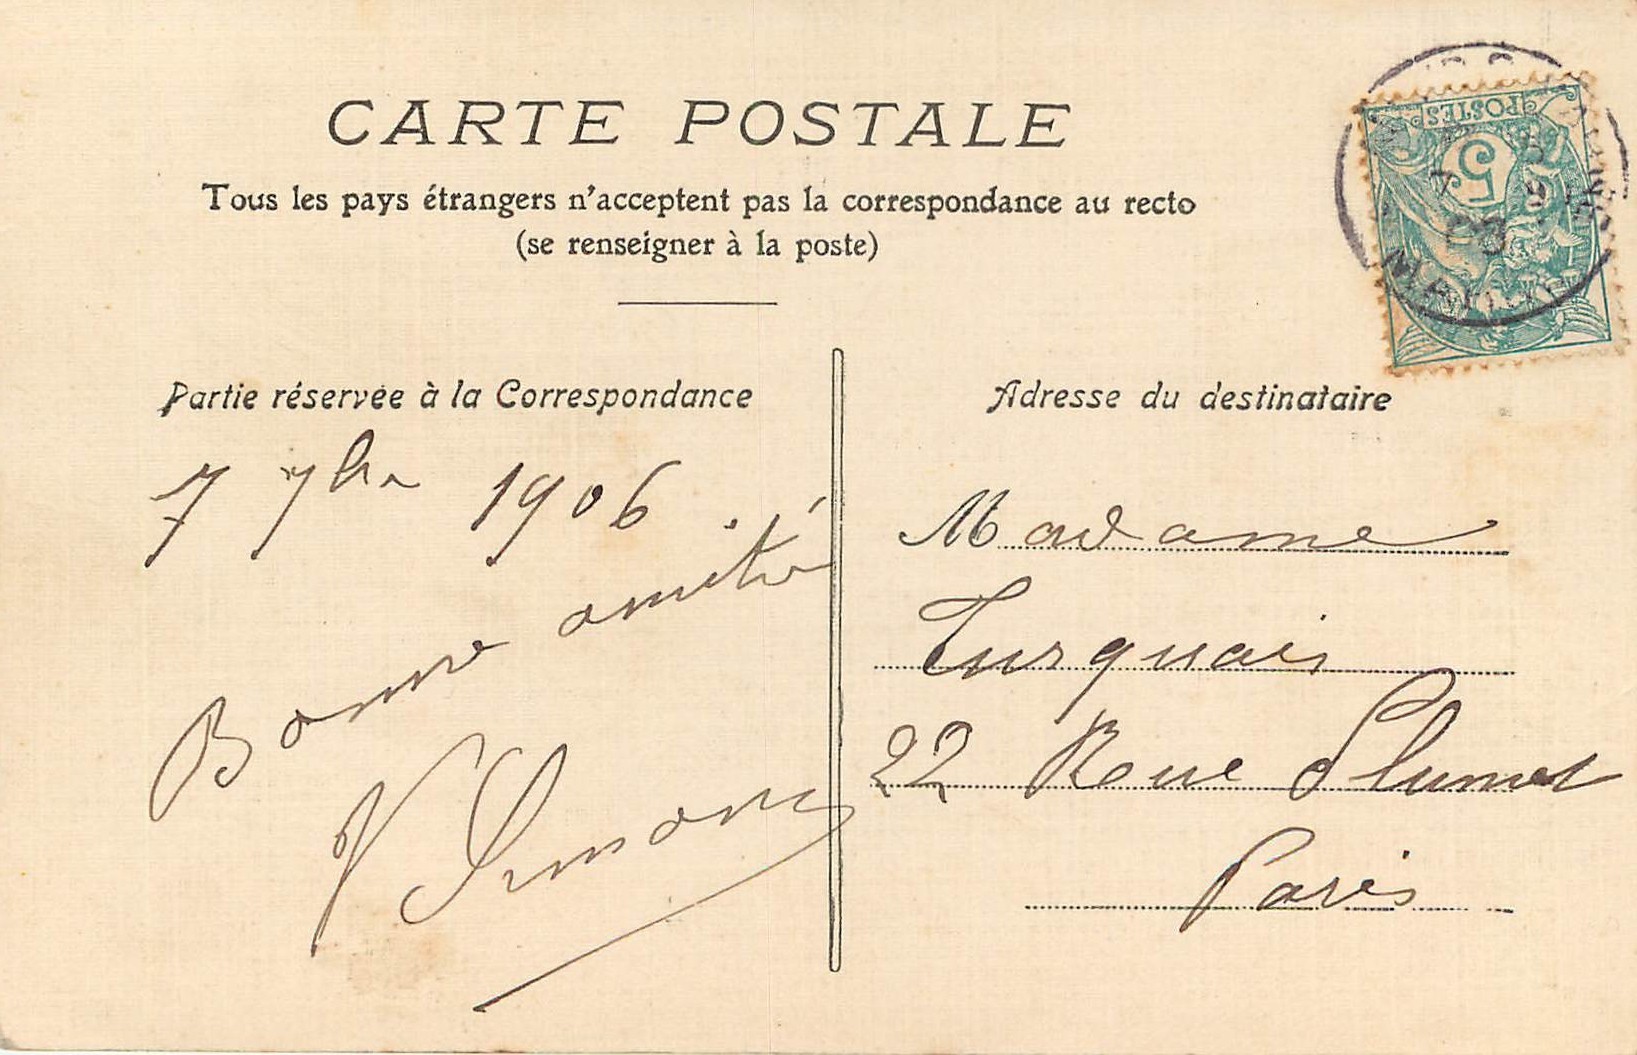 CARTE POSTALE
Tous les pays étrangers n'acceptent pas la correspondance au recto
(se renseigner à la poste)
Partie réservée à la Correspondance
7 7bre 1906
Bonne amitié
V Simon
Adresse du destinataire
Madame
Turquais
22 Rue Plumet
Paris
POSTES
5